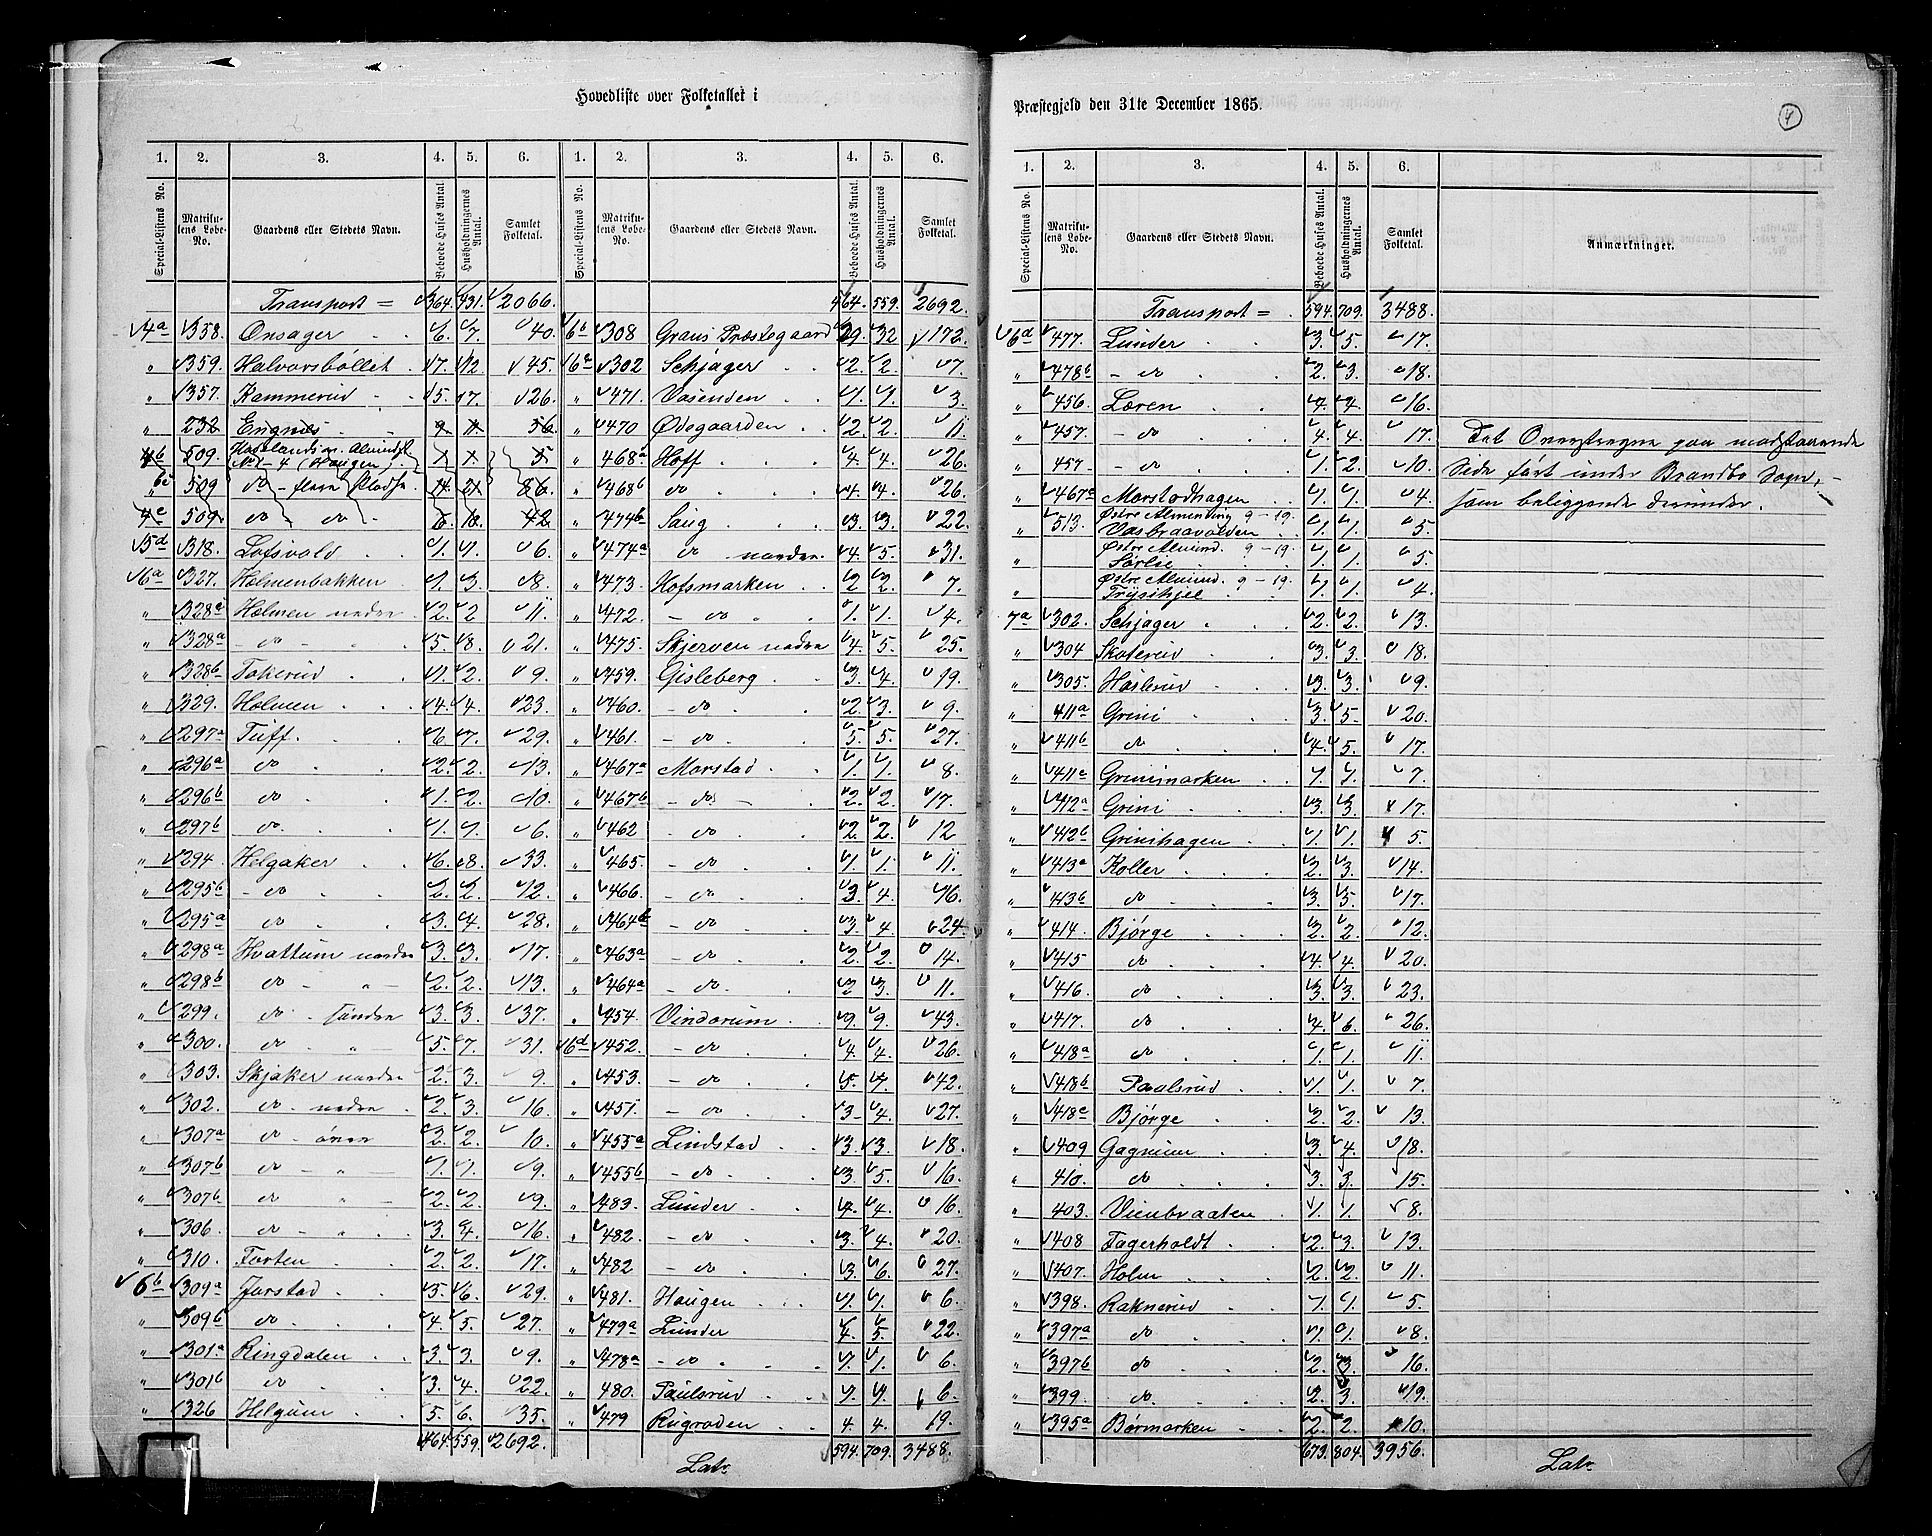 Hovedliste over Folketallet i
1. 2. 3. 4. 5. 6. 1. 2. 3. 4. 5. 6.
Special-Listens No. Matrikulens Løbe-No. Gaardens eller Stedets Navn. Beboede Huses Antal. Husholdningernes Antal. Samlet Folketal. Special-Listens No. Matrikulens Løbe-No. Gaardens eller Stedets Navn. Beboede Huses Antal. Husholdningernes Antal. Samlet Folketal.
Transport = 364. 431. 2066.
4a 358. Onsager 6. 7. 40.
" 359. Halvorsbøllet 7. 12. 45.
" 357. Kammerud 5. 17. 26.
" 232 Engnæs 9. 11. 56.
509. No 1-4 (Haugen) 1. 1. 5
509 do - flere Pladse 14. 21. 86.
4c 509. do do 6. 10. 42
5d 318. Lofsvold 1. 1. 6.
6a 327. Holmenbakken 1. 3. 8.
" 328c Holmen nedre 2. 2 11.
" 328a - do - 5. 8. 21.
" 328b Tokerud 1. 2. 9.
" 329. Holmen 4. 4. 23.
" 297a Tuff. 6. 7. 29.
" 296a do 2. 2. 13.
" 296b do 1. 2. 10.
" 297b do. 1. 1. 6.
" 294. Helgaker 6. 8. 33.
" 295b - do 2. 2. 12.
" 295a do 3. 4. 28.
" 298a Hvattum nordre 3. 3. 17.
" 298b do - " - 2. 2. 13.
" 299. do - søndre 3. 3. 37.
" 300. do - " 5. 7. 31.
" 303. Skjaker nordre 2. 3. 9.
" 302. do - nedre 2. 3. 16.
" 307a do - øvre 2. 2. 10.
" 307b do - " 1. 1. 9.
" 307b do " - 2. 2. 9.
" 306. do - " 3. 4. 16.
" 310. Forten 2. 2. 17.
6b 309a Jorstad 5. 6. 29.
" 309b do 4. 5. 27.
" 301a Ringdalen 3. 3. 9.
" 301b do 3. 4. 22.
" 326 Helgum 5. 6. 35.
464. 559. 2692.
464. 559. 2692.
6b 308 Grans Præstegaard 29. 32 172.
6c 302 Schjager 2. 2. 7.
" 471. Vasenden 1. 1. 3.
" 470 Ødegaarden 2. 2. 11.
" 468a Hoff 4. 4. 26.
" 468b do 4. 4. 26.
" 474b Saug 3. 3. 22.
" 474a do nordre 4. 5. 31.
" 473. Hofsmarken 2 2. 7.
" 472. - do " 1. 1. 4.
" 475. Skjerven nedre 4. 5. 25.
" 459. Gisleberg 3. 4. 19.
" 460. - do 2. 3. 9.
" 461. - do 5. 5. 27.
" 467a Morstad 1. 1. 8.
" 467b - do - 2. 2. 17.
" 462 - do 2. 2. 12
" 465. - do 1. 1. 11.
" 466. - do 3. 4. 16.
" 464b - do 3. 4. 24.
" 463a - do 2. 2. 14.
" 464a - do 2 3. 11.
" 454. Vindorum 9. 9. 43.
6d 452. - do 4. 4. 26.
" 453. - do 5. 7. 42.
" 451. - do 3- 4. 27.
" 455a Lindstad 3. 3. 18.
" 455b - do 3. 5. 16.
" 483. Lunder 4. 4. 16.
" 482. - do 3. 4. 20.
" 482 - do 3. 6. 27.
" 481. Haugen 1. 1. 6.
" 479a Lunder 4. 5. 22.
" 478a - do 1. 1. 6.
" 480. Paulsrud 1. 1. 6.
" 479 Rugroden 4. 4. 19.
594. 709. 3488.
Lat.
Præstegjeld den 31te December 1865.
4
1. 2. 3. 4. 5. 6.
Special-Listens No. Matrikulens Løbe-No. Gaardens eller Stedets Navn. Beboede Huses Antal. Husholdningernes Antal. Samlet Folketal. Anmærkninger.
Transport = 594. 709. 3488.
6d 477. Lunder 3. 5. 17.
" 478b - do 2. 3. 18.
" 456. Læren 4. 4. 16.
" 457. - do 4. 4. 17.
" 457 - do 1. 2. 10.
" 467a Morstadhagen 1. 1. 4.
" 513. Østre Alminding 9-19. Vasbraavolden 1. 1. 5.
" Østre Almind. 9-19. Sørlie 1. 1. 5.
" Østre Almind. 9-19. Trysihjel 1. 1. 4.
7a 302. Schjager 2. 2. 13.
" 304 Skoterud 3. 3. 18.
" 305. Haslerud 3. 3. 9.
" 411a Grini 3. 5. 20.
" 411b do 4. 5. 17.
" 411c Grinimarken 1. 1. 7.
" 412a Grini 3. 3. 17.
" 412b Grinihagen 1. 1. 5.
" 413a Koller 2. 3. 14.
" 413b do 3. 5. 17.
" 414. Bjørge 2. 2. 12.
" 415 do 4. 4. 20.
" 416. do 3. 3. 23.
" 417. do 4. 6. 26.
" 418a do 1. 1. 11.
" 418b Paalsrud 1. 1. 7.
" 418c Bjørge 2. 2. 13.
" 409 Gagnum 3. 4. 18.
" 410. do 3. 3. 15.
" 403. Vienbraaten 1. 1. 8.
" 408 Fagerholdt 2. 3. 13.
" 407. Holm 2. 2. 11.
" 398. Raknerud 1. 1. 5.
" 397a do 1. 1. 8.
" 397b do 2. 3. 16.
" 399. do 2. 3. 19.
" 395a Børmarken 2. 2. 10.
673. 804. 3956.
Det Overstregne paa modstaaende
Side ført under Brandbo Sogn, -
som beliggende derunder.
Lat.